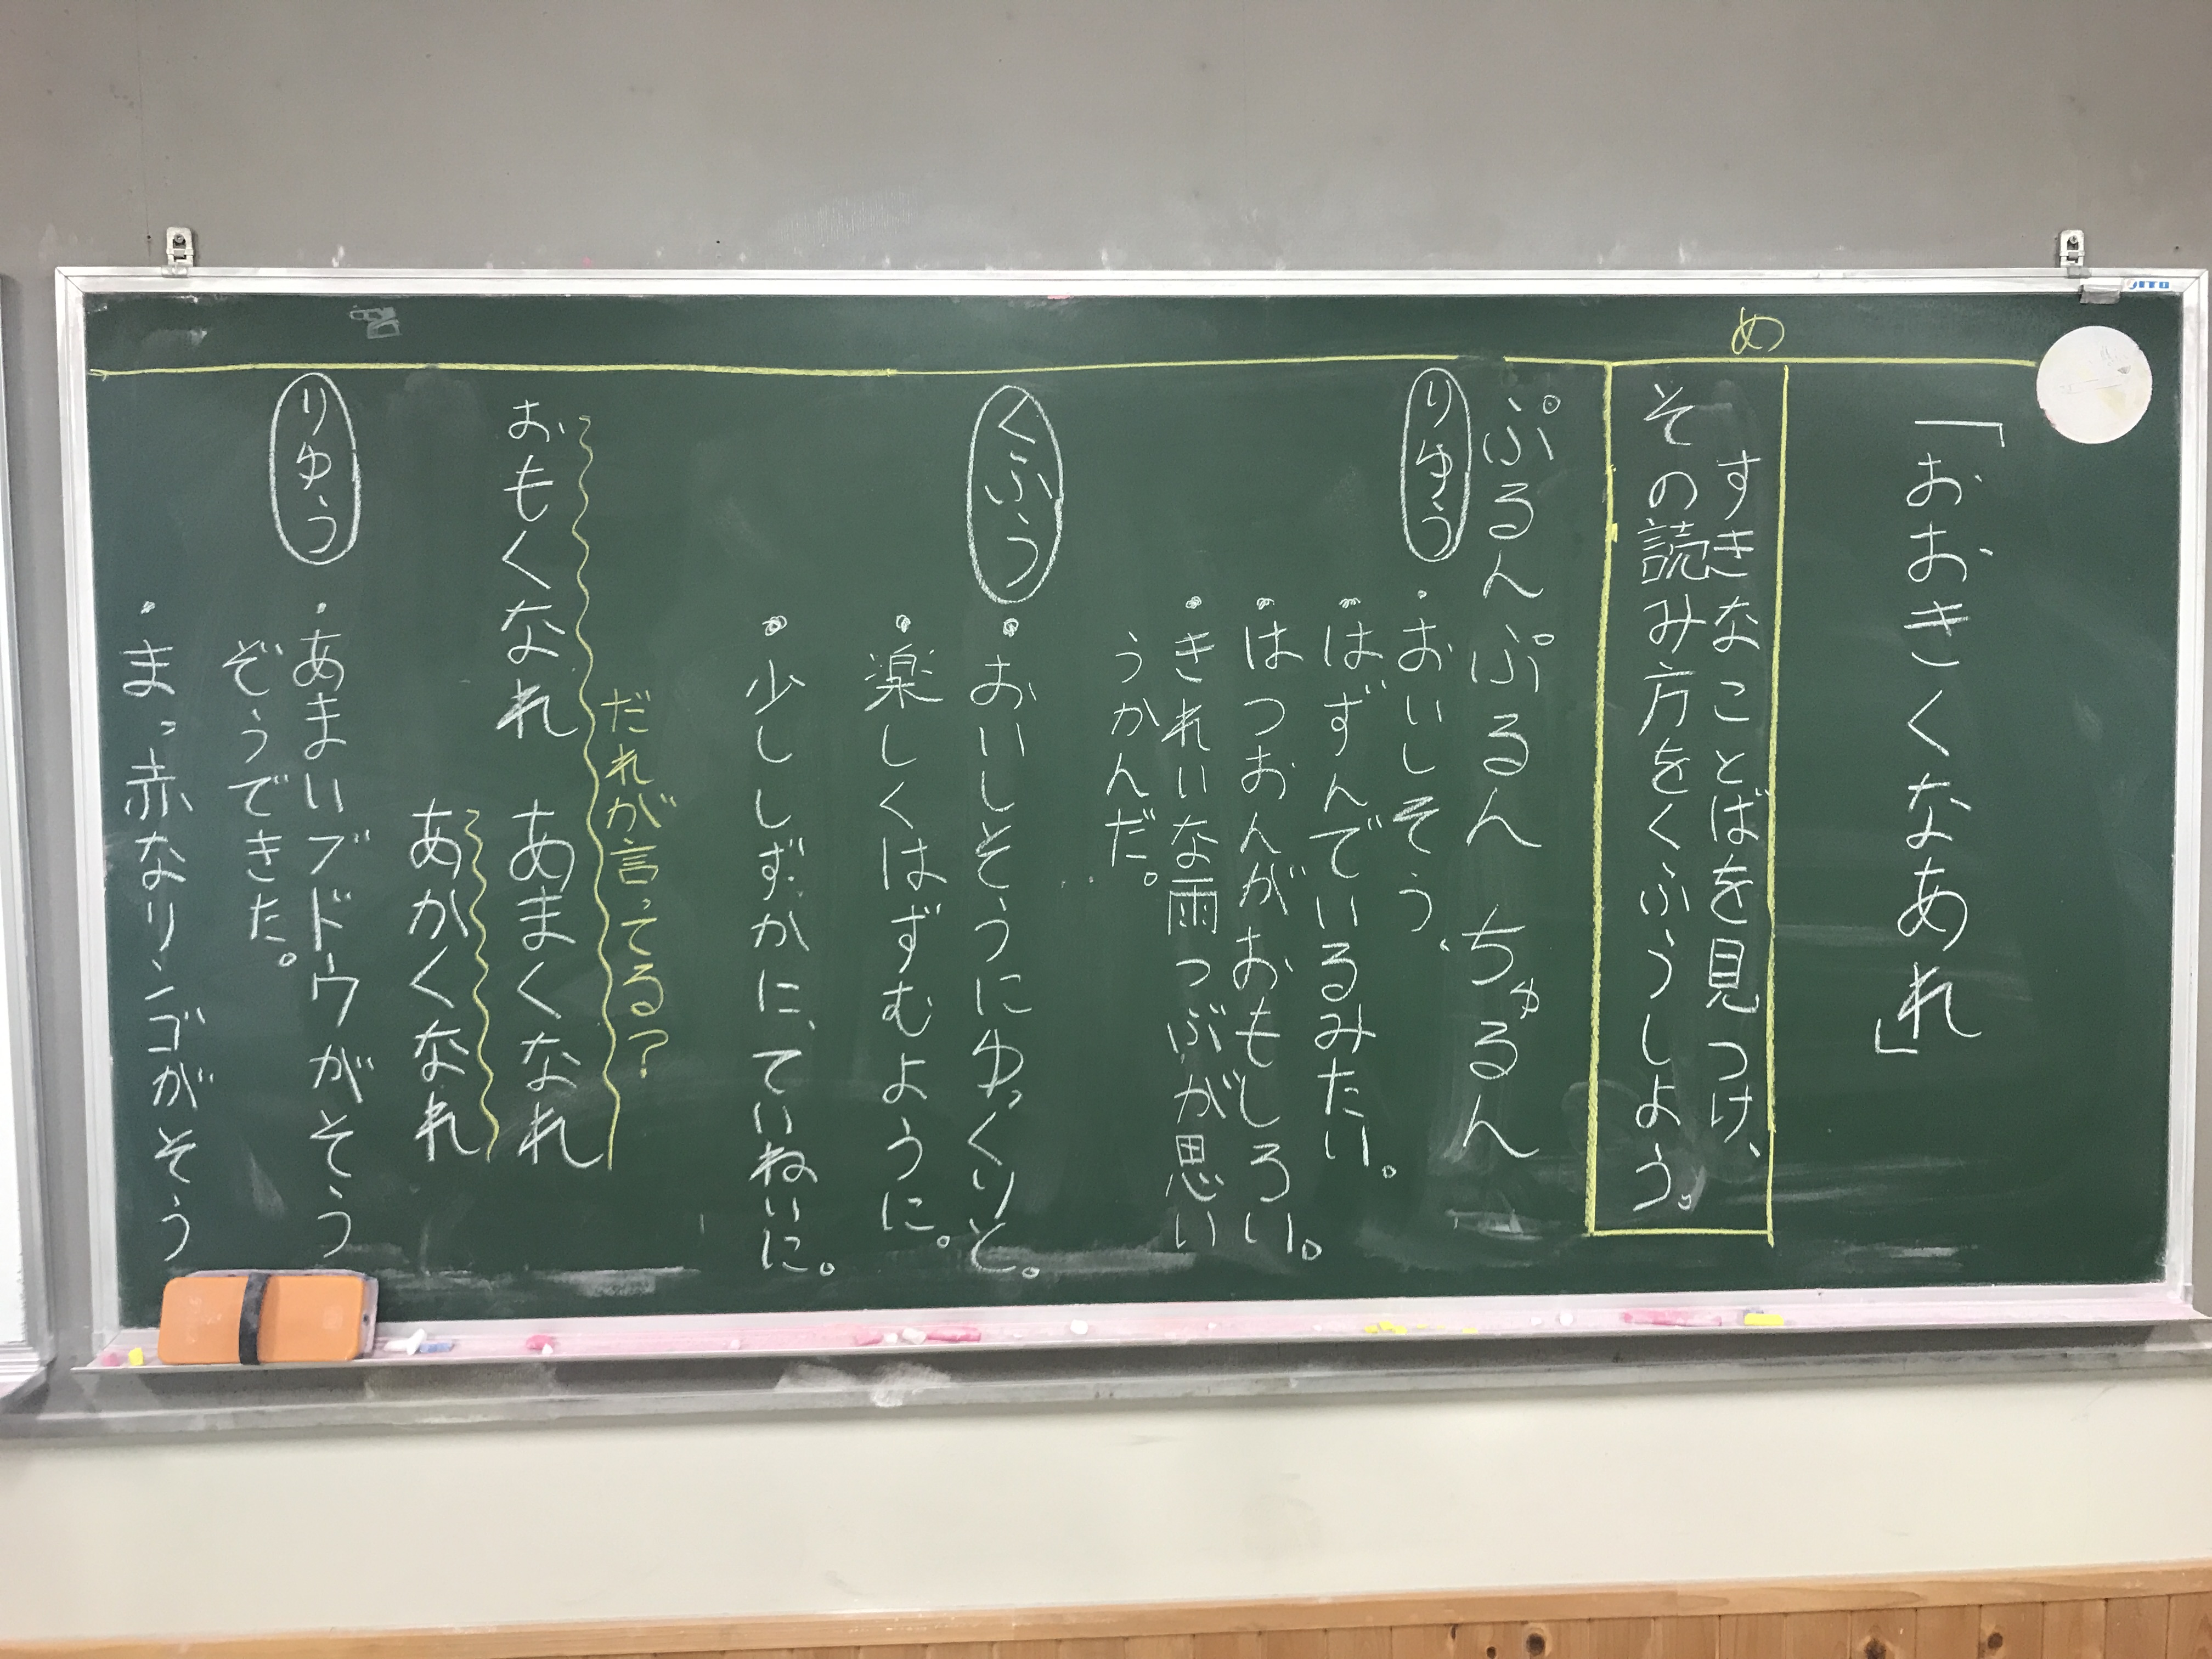 「おおきくなあれ」
め
すきなことばを見つけ、
その読み方をくふうしよう。
ぷるんぷるん ちゅるん
りゆう
・おいしそう。
・はずんでいるみたい。
・はつおんがおもしろい。
・きれいな雨つぶが思い
うかんだ。
くふう
・おいしそうにゆっくりと。
・楽しくはずむように。
・少ししずかに、ていねいに。
だれが言ってる?
おもくなれ あまくなれ
あかくなれ
りゆう
・あまいブドウがそう
ぞうできた。
・まっ赤なリンゴがそう